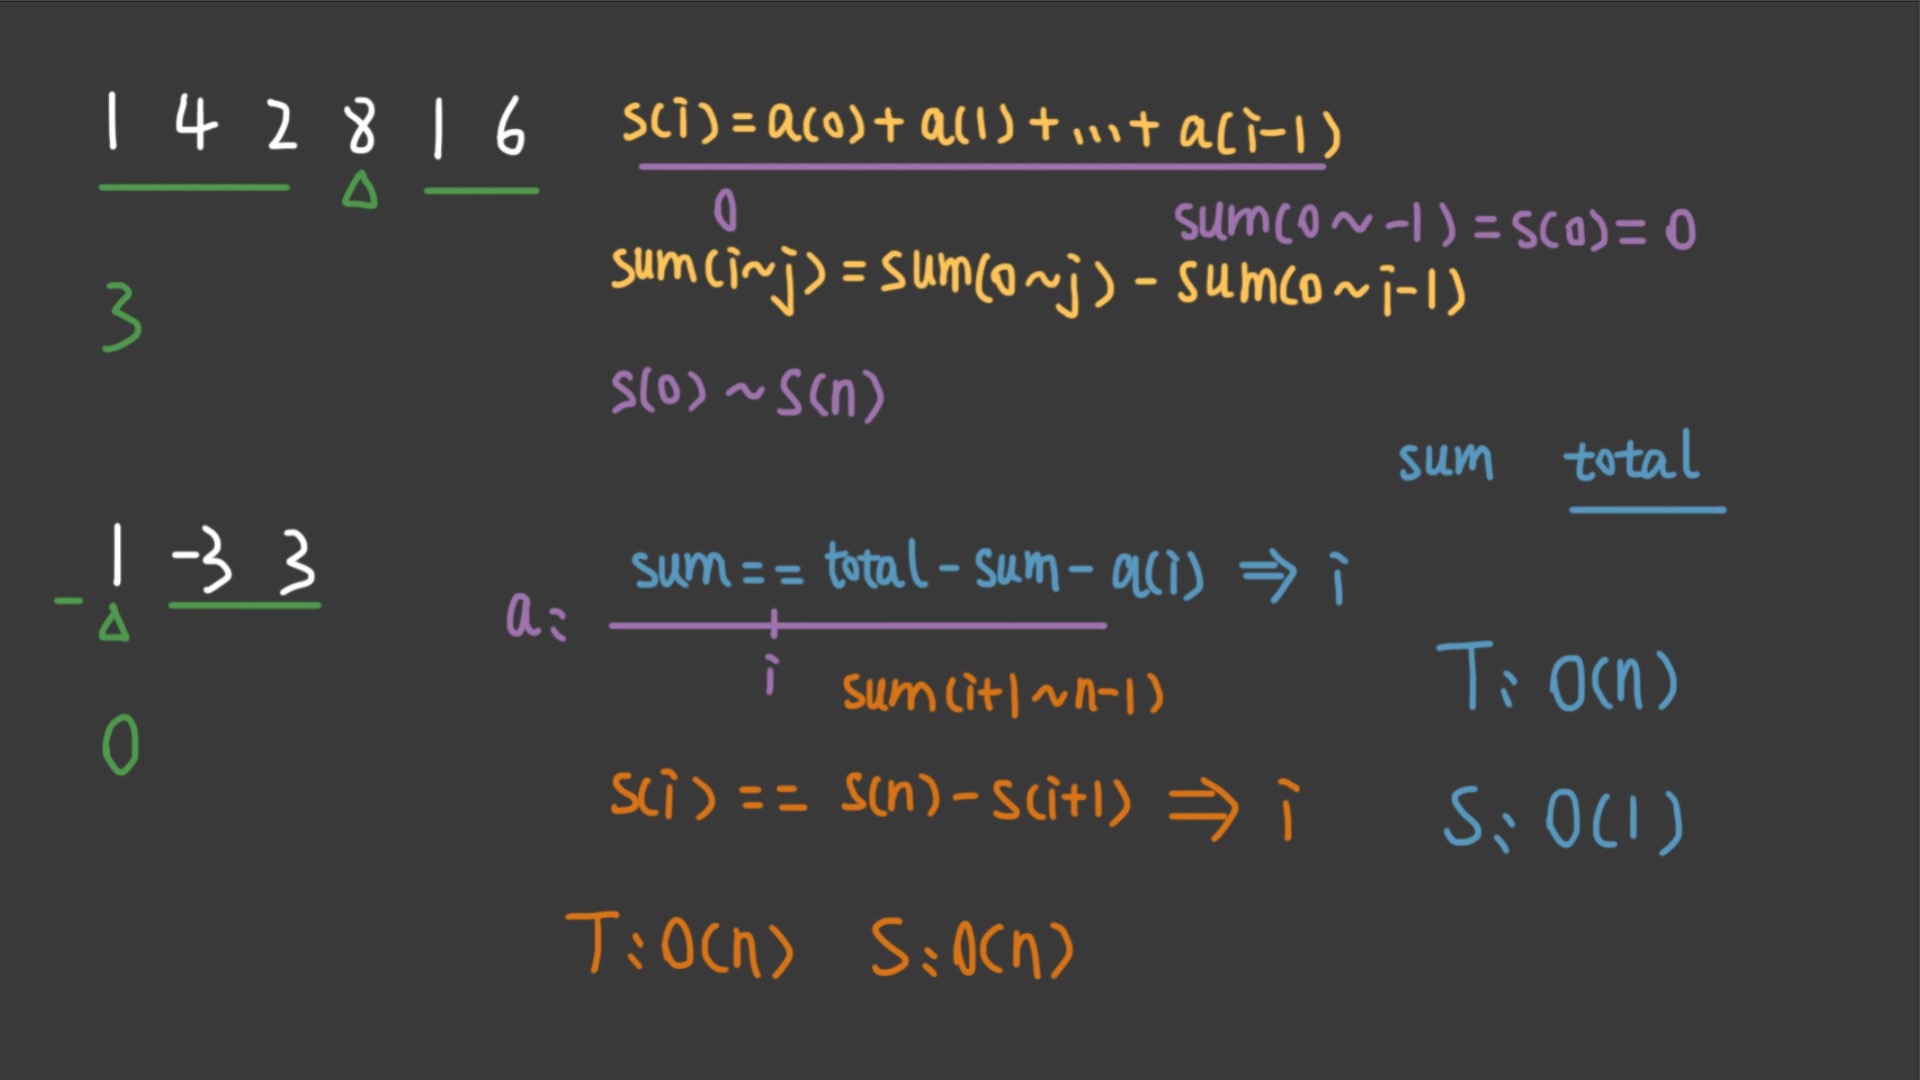 1 4 2 8 1 6
△
3
s(i) = a(0) + a(1) + ... + a(i-1)
0
sum(0 ~ -1) = s(0) = 0
sum(i~j) = sum(0~j) - sum(0~i-1)
s(0) ~ s(n)
sum total
1 -3 3
- △
0
sum == total - sum - a(i) ⇒ i
a:
i
sum(i+1 ~ n-1)
s(i) == s(n) - s(i+1) ⇒ i
T: O(n) S: O(n)
T: O(n)
S: O(1)